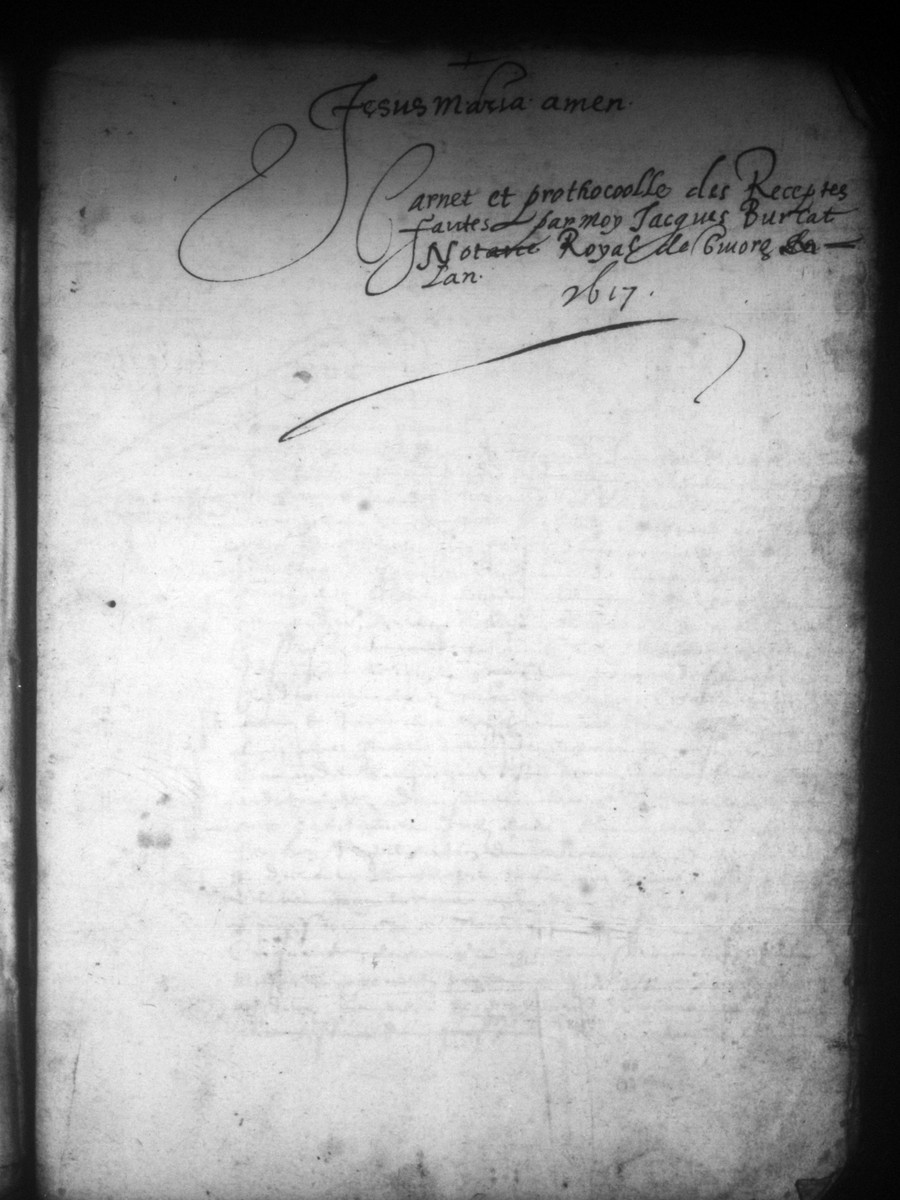 Jesus maria amen.
Carnet et prothocoolle des Receptes
faictes par moy Jacques Burlat
Notaire Royal de En
Lan.
1617.